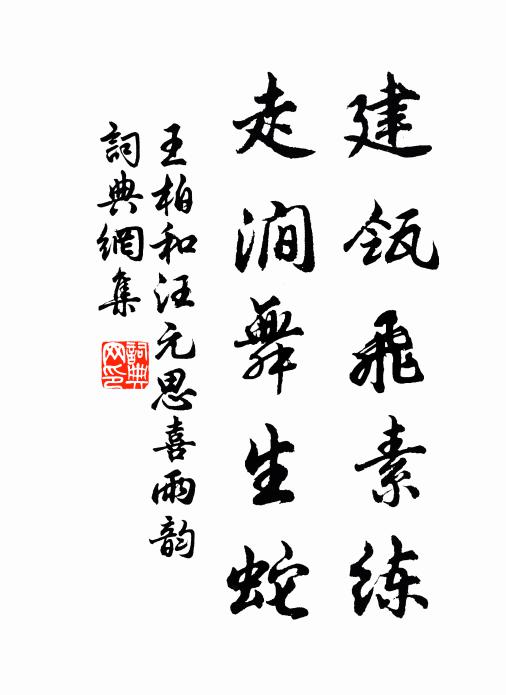 建瓴飛素練
走澗舞生蛇
王柏和汪元思喜雨韵
詞典網集
詞典網印